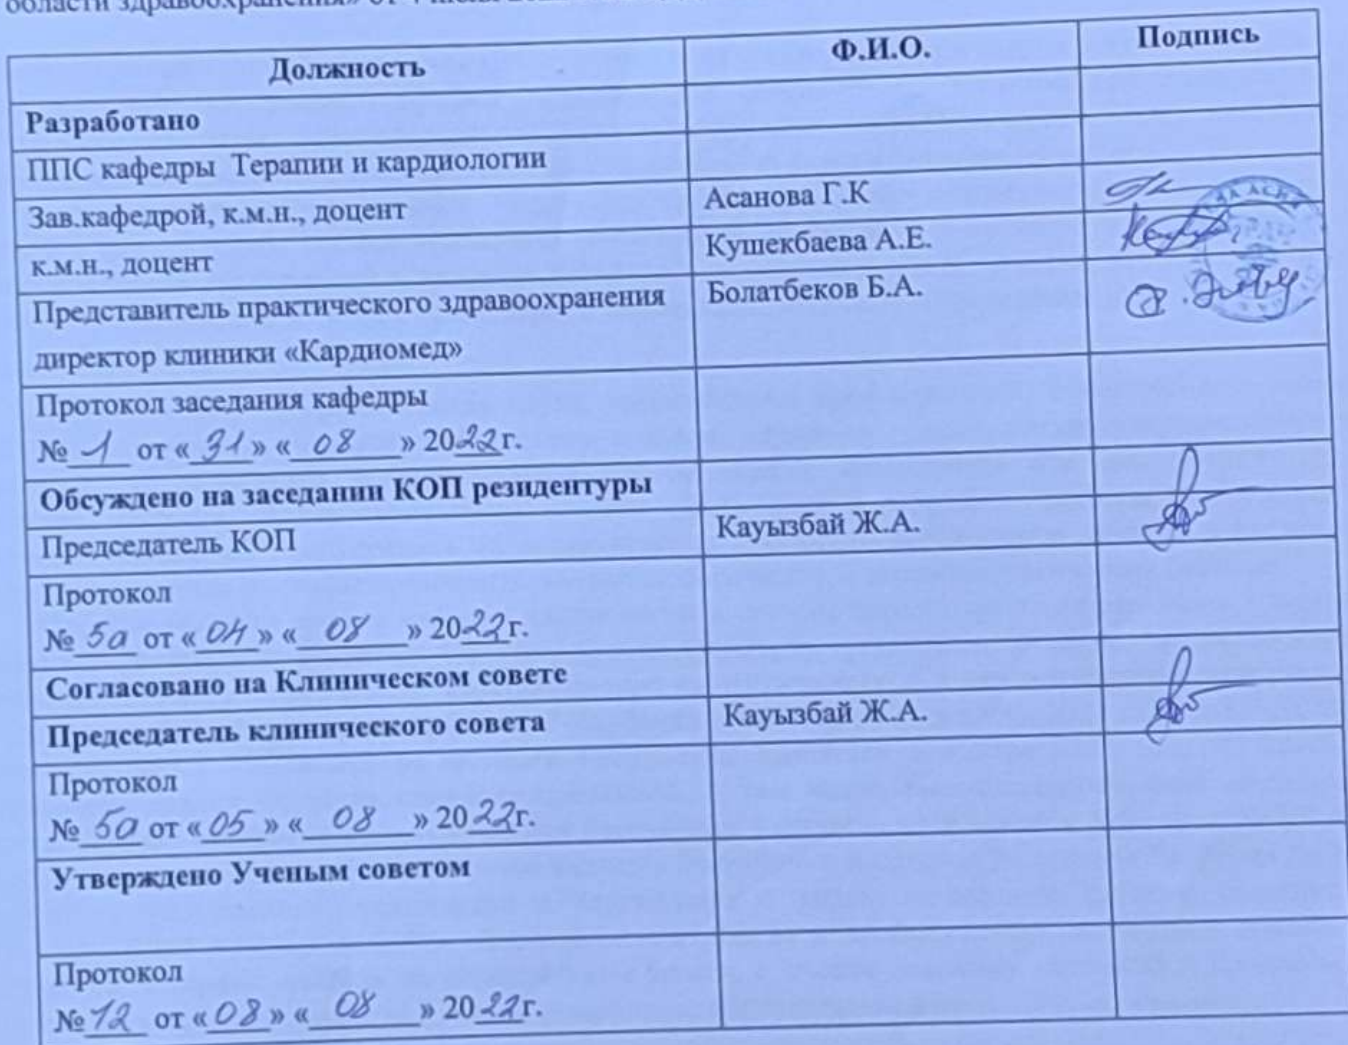 области здравоохранения» от 4 июля
Должность Ф.И.О. Подпись
Разработано
ППС кафедры Терапии и кардиологии
Зав.кафедрой, к.м.н., доцент Асанова Г.К
к.м.н., доцент Кушекбаева А.Е.
Представитель практического здравоохранения Болатбеков Б.А.
директор клиники «Кардиомед»
Протокол заседания кафедры
№ 1 от «31» «08» 2022г.
Обсуждено на заседании КОП резидентуры
Председатель КОП Кауызбай Ж.А.
Протокол
№ 5а от «04» «08» 2022г.
Согласовано на Клиническом совете
Председатель клинического совета Кауызбай Ж.А.
Протокол
№ 5а от «05» «08» 2022г.
Утверждено Ученым советом
Протокол
№12 от «08» «08» 2022г.